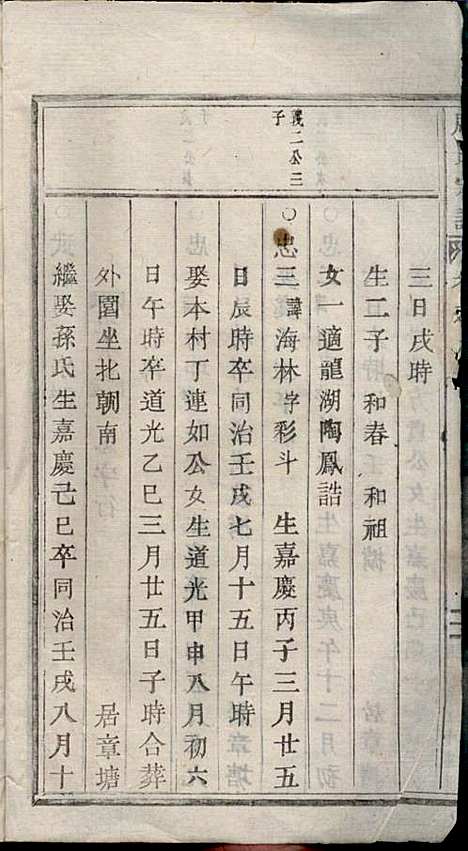 三日戌時
生二子 和春 和祖
女一適龍湖陶鳳誥
茂二公三子
○忠三諱海林字彩斗 生嘉慶丙子三月廿五
日辰時卒同治壬戌七月十五日午時
娶本村丁連如公女生道光甲申八月初六
日午時卒道光乙巳三月廿五日子時合葬
外園坐北朝南 居章塘
繼娶孫氏生嘉慶己巳卒同治壬戌八月十